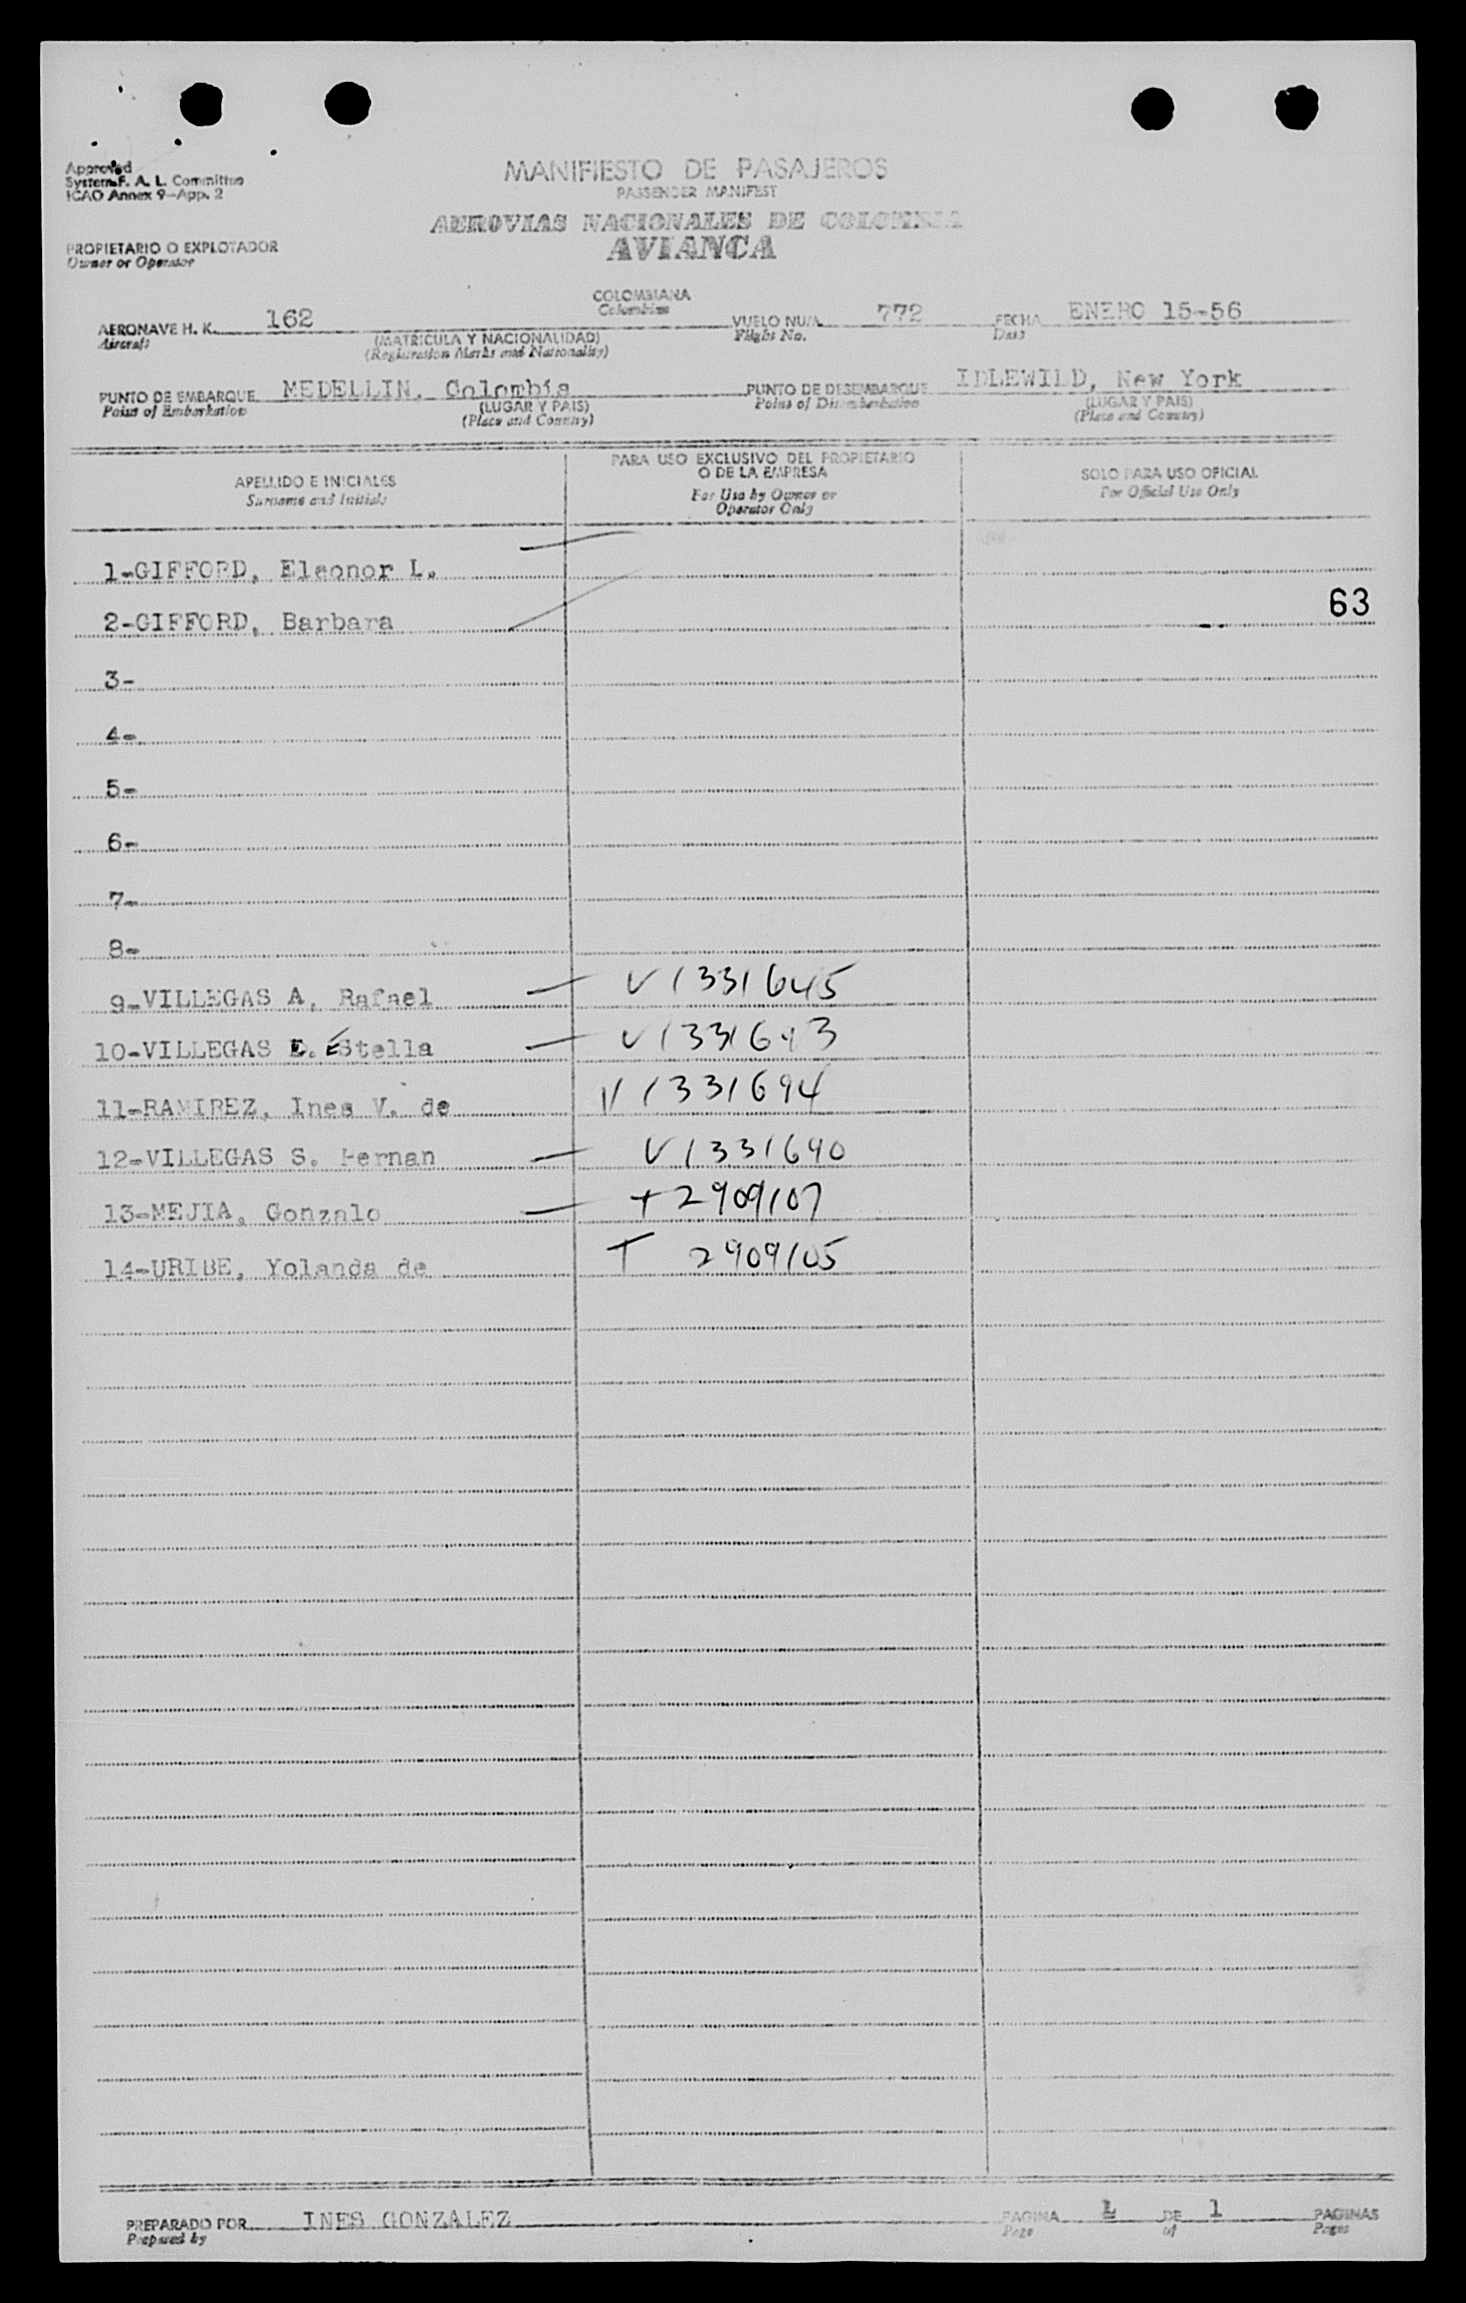 Approved
System F. A. L. Committee
ICAO Annex 9-App. 2
MANIFIESTO DE PASAJEROS
PASSENGER MANIFEST
AEROVIAS NACIONALES DE COLOMBIA
AVIANCA
PROPIETARIO O EXPLOTADOR
Owner or Operator
COLOMBIANA
Colombian
AERONAVE H. K. 162 VUELO NUM. 772 FECHA ENERO 15-56
Aircraft (MATRICULA Y NACIONALIDAD) Flight No. Date
(Registration Marks and Nationality)
PUNTO DE EMBARQUE MEDELLIN, Colombia PUNTO DE DESEMBARQUE IDLEWILD, New York
Point of Embarkation (LUGAR Y PAIS) Point of Disembarkation (LUGAR Y PAIS)
(Place and Country) (Place and Country)
APELLIDO E INICIALES
Surname and Initials
PARA USO EXCLUSIVO DEL PROPIETARIO
O DE LA EMPRESA
For Use by Owner or
Operator Only
SOLO PARA USO OFICIAL
For Official Use Only
1-GIFFORD, Eleonor L.
2-GIFFORD, Barbara 63
3-
4-
5-
6-
7-
8-
9-VILLEGAS A, Rafael V1331645
10-VILLEGAS E. EStella V1331643
11-RAMIREZ, Ines V. de V1331694
12-VILLEGAS S. Hernan V1331640
13-MEJIA, Gonzalo T2909107
14-URIBE, Yolanda de T 2909105
PREPARADO POR INES GONZALEZ PAGINA 1 DE 1 PAGINAS
Prepared by Page of Pages